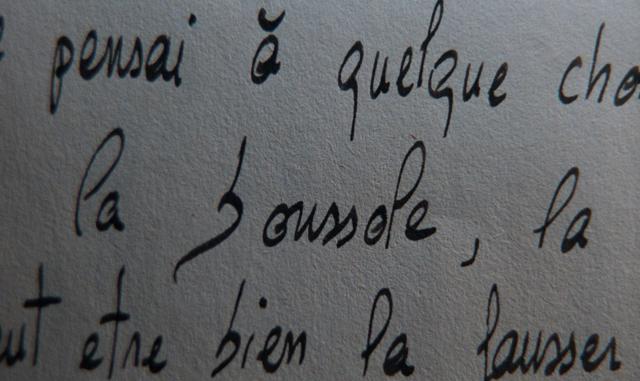 pensai à quelque cho
la boussole, la
ut etre bien la fausser